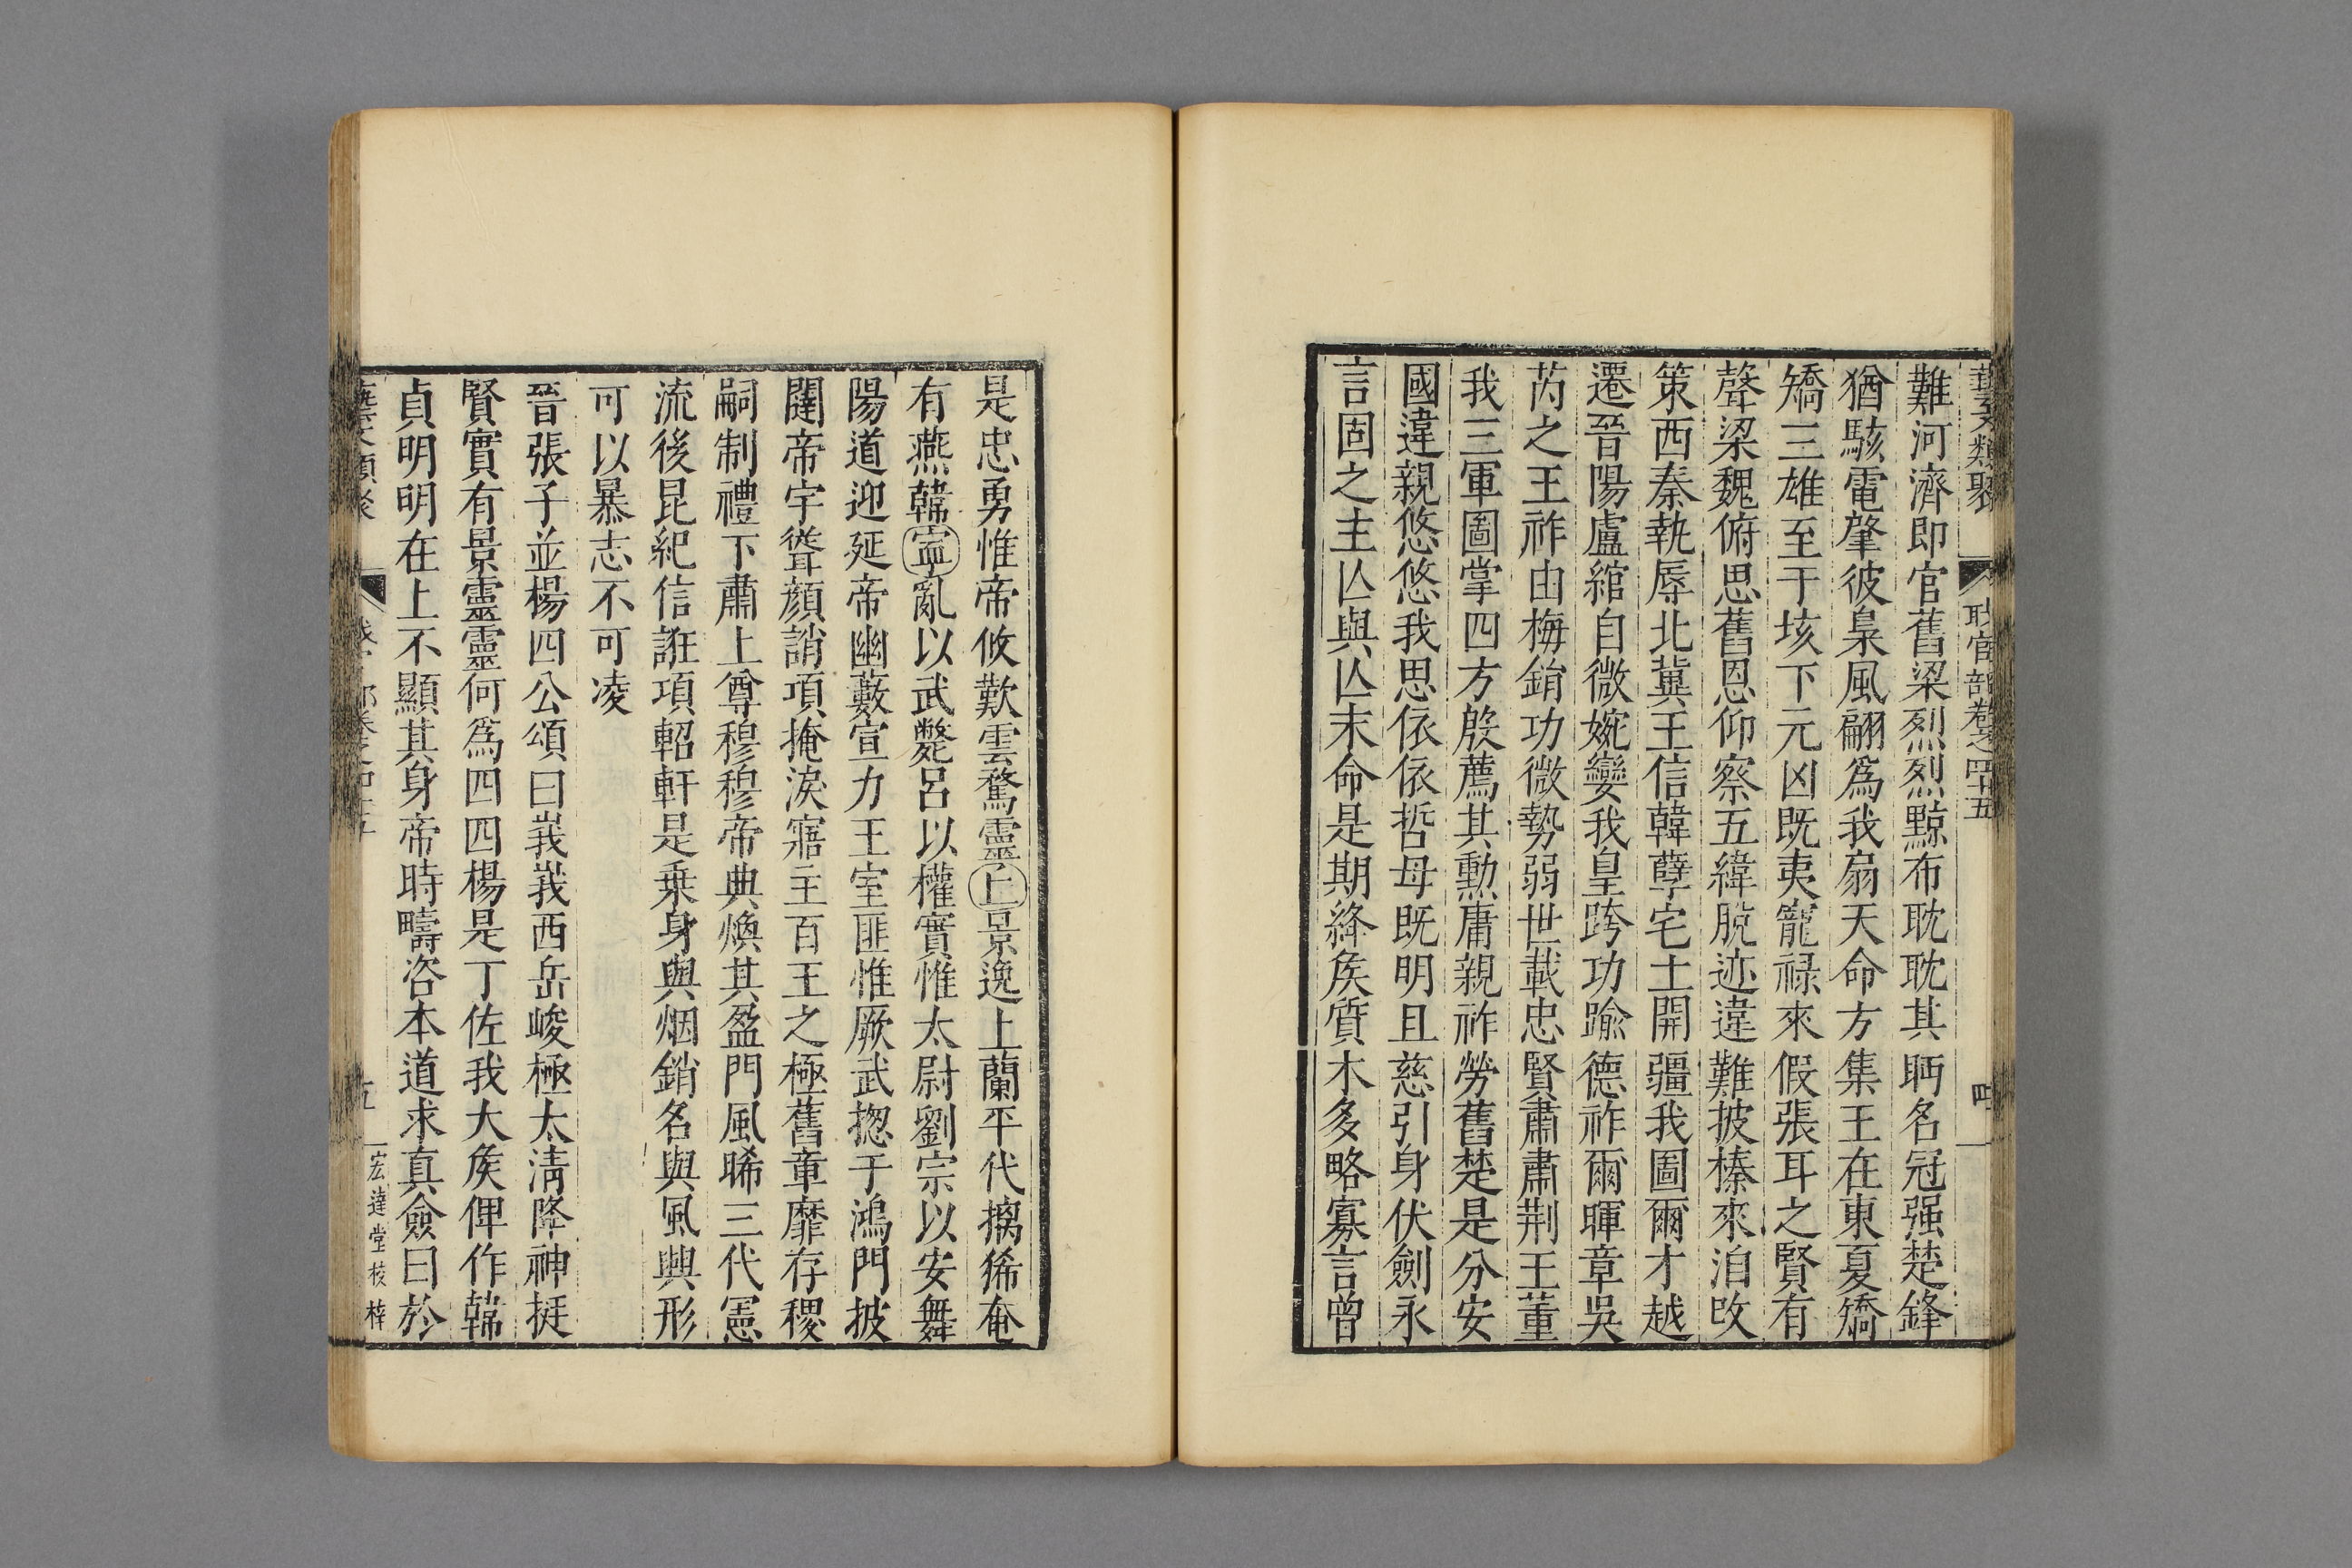 藝文類聚 職官部卷之四十五 四
難河濟即官舊梁烈烈黥布耽耽其眄名冠强楚鋒
猶駭電肇彼梟風翩為我扇天命方集王在東夏矯
矯三雄至于垓下元凶既夷寵祿來假張耳之賢有
聲梁魏俯思舊恩仰察五緯脫迹違難披榛來洎改
策西秦執辱北冀王信韓孽宅土開疆我圖爾才越
遷晉陽盧綰自微婉孌我皇跨功踰德祚爾暉章吳
芮之王祚由梅鋗功微勢弱世載忠賢肅肅荆王董
我三軍圖掌四方殷薦其勳庸親祚勞舊楚是分安
國違親悠悠我思依依哲母既明且慈引身伏劍永
言固之主亾與亾末命是期絳矦質木多略寡言曾
是忠勇惟帝攸歎雲騖靈上景逸上蘭平代擒狶奄
有燕韓寍亂以武斃呂以權實惟太尉劉宗以安舞
陽道迎延帝幽藪宣力王室匪惟厥武揔于鴻門披
闥帝宇聳顏誚項掩淚寤主百王之極舊章靡存稷
嗣制禮下肅上尊穆穆帝典煥其盈門風睎三代憲
流後昆紀信誑項軺軒是乗身與烟銷名與風興形
可以暴志不可凌
晉張子並楊四公頌曰峩峩西岳峻極太清降神挺
賢實有景靈靈何為四四楊是丁佐我大矦俾作韓
貞明明在上不顯其身帝時疇咨本道求真僉曰於
五 宏達堂校梓